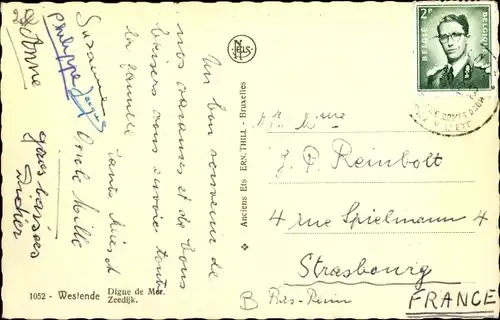 Un bon souvenir de
nos vacances et de bons
baisers vous envoie toute
la famille
Tante Mie, et
Oncle Mille
Suzanne
Philippe Jacques
Anne
gros baisers
Didier
NELS
Anciens Ets ERN. THILL. - Bruxelles
1052 - Westende Digue de Mer.
Zeedijk.
2F
BELGIE BELGIQUE
J. P. Reinbolt
4 rue Spielmann 4
Strasbourg
Bas-Rhin
FRANCE